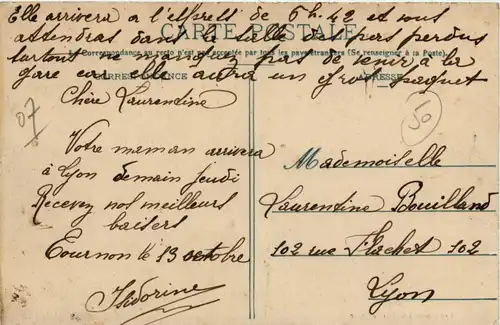 Elle arrivera à l'express de 6h.42 et vous
attendras dans la salle des pas perdus
surtout ne manquez pas de venir à la
gare car elle aura un gros paquet
CARTE POSTALE
La Correspondance au recto n'est pas acceptée par tous les pays étrangers (Se renseigner à la Poste).
CORRESPONDANCE
ADRESSE
Chère Laurentine
Votre maman arrivera
à Lyon demain jeudi
Recevez nos meilleurs
baisers
Tournon le 13 octobre
Isidorine
07
50
Mademoiselle
Laurentine Bouilland
102 rue Flachet 102
Lyon